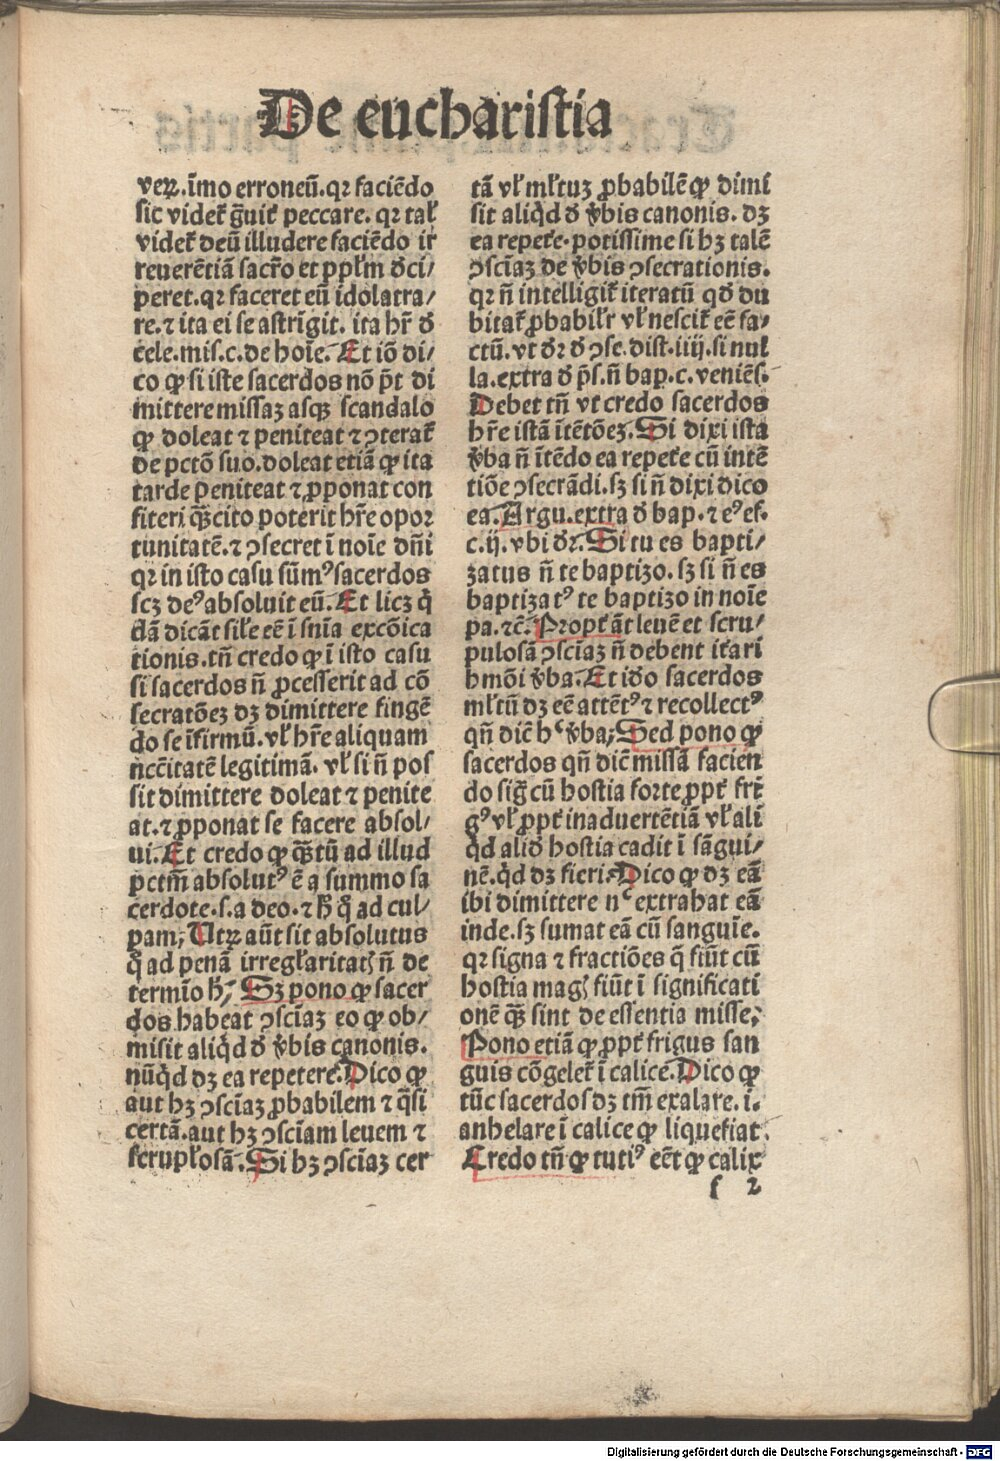 De eucharistia
veꝝ. īmo erroneū. qꝛ faciēdo
sic videt᷑ g̃uit᷑ peccare. qꝛ tal̕
videt᷑ deū illudere faciēdo ir
reuerētiā sacr̄o et ppl̕m ꝺci/
peret. qꝛ faceret eū idolatra/
re. ⁊ ita ei se astrīgit. ita hr̄ ꝺ
cele. mis. c. de hoīe. Et iō di/
co ꝙ si iste sacerdos nō p̄t di
mittere missaꝫ asqꝫ scandalo
ꝙ doleat ⁊ peniteat ⁊ ↄterat᷑
de pctō suo. doleat etiā ꝙ ita
tarde peniteat ⁊ ꝓponat con
fiteri q̄ꝫcito poterit hr̄e opoꝛ
tunitatē. ⁊ ↄsecret ī noīe dn̄i
qꝛ in isto casu sūmꝰ sacerdos
scꝫ deꝰ absoluit eū. Et licꝫ q̇
dā dicāt sil̕e eē ī sn̄ia excōica
tionis. tn̄ credo ꝙ ī isto casu
si sacerdos n̄ ꝓcesserit ad cō
secratōeꝫ dꝫ dimittere fingē
do se īfirmū. vl̕ hr̄e aliquam
nccītatē legitimā. vl̕ si n̄ pos
sit dimittere doleat ⁊ penite
at. ⁊ ꝓponat se facere absol/
ui. Et credo ꝙ q̄ꝫtū ad illud
pctm̄ absolutꝰ ē a summo sa
cerdote. s. a deo. ⁊ h̄ q̊ ad cul/
pam; Utꝝ aūt sit absolutus
q̊ ad penā irregl̕aritatꝭ n̄ de
termīo h̄; Sꝫ pono ꝙ sacer
dos habeat ↄsciaꝫ eo ꝙ ob/
misit aliq̇d ꝺ v̄bis canonis.
nūq̇d dꝫ ea repetere. Dico ꝙ
aut hꝫ ↄsciaꝫ ꝓbabilem ⁊ q̄si
certā. aut hꝫ ↄsciam leuem ⁊
scrupl̕osā. Si hꝫ ↄsciaꝫ cer
tā vl̕ ml̕tuꝫ ꝓbabilē ꝙ dimi
sit aliq̇d ꝺ v̄bis canonis. dꝫ
ea repet᷑e. potissime si hꝫ talē
ↄsciaꝫ de v̄bis ↄsecrationis.
qꝛ n̄ intelligit᷑ iteratū qꝺ du
bitat᷑ ꝓbabilr̄ vl̕ nescit᷑ eē fa/
ctū. vt ꝺꝛ ꝺ ↄse. dist. iiij. si nul
la. extra ꝺ p̄s. n̄ bap. c. veniēs.
Debet tn̄ vt credo sacerdos
hr̄e istā ītētōeꝫ. Si dixi ista
v̄ba n̄ ītēdo ea repet᷑e cū intē
tiōe ↄsecrādi. sꝫ si n̄ dixi dico
ea. Argu. extra ꝺ bap. ⁊ eꝰ ef.
c. ij. vbi ꝺꝛ. Si tu es bapti/
zatus n̄ te baptizo. sꝫ si n̄ es
baptizatꝰ te baptizo in noīe
pa. ⁊c̄. Propt᷑ āt leuē et scru/
pulosā ↄsciaꝫ n̄ debent it᷑ari
hmōi v̄ba. Et iꝺo sacerdos
ml̕tū dꝫ eē attētꝰ ⁊ recollectꝰ
qn̄ dic̄ hᶜ v̄ba; Sed pono ꝙ
sacerdos qn̄ dic̄ missā facien
do sig̃ cū hostia forte ꝓpt᷑ fri
gꝰ vl̕ ꝓpt᷑ inaduertētiā vl̕ ali
q̇d aliꝺ hostia cadit ī sāgui/
nē. q̇d dꝫ fieri. Dico ꝙ dꝫ eā
ibi dimittere nᶜ extrahat eā
inde. sꝫ sumat eā cū sanguīe.
qꝛ signa ⁊ fractiōes q̄ fiūt cū
hostia magꝭ fiūt ī significati
onē q̄ꝫ sint de essentia misse;
Pono etiā ꝙ ꝓpt᷑ frigus san
guis cōgelet᷑ ī calice. Dico ꝙ
tūc sacerdos dꝫ tm̄ exalare. i.
anhelare ī calice ꝙ liquefiat.
Credo tn̄ ꝙ tutiꝰ eēt ꝙ calix
s 2
Digitalisierung gefördert durch die Deutsche Forschungsgemeinschaft - DFG